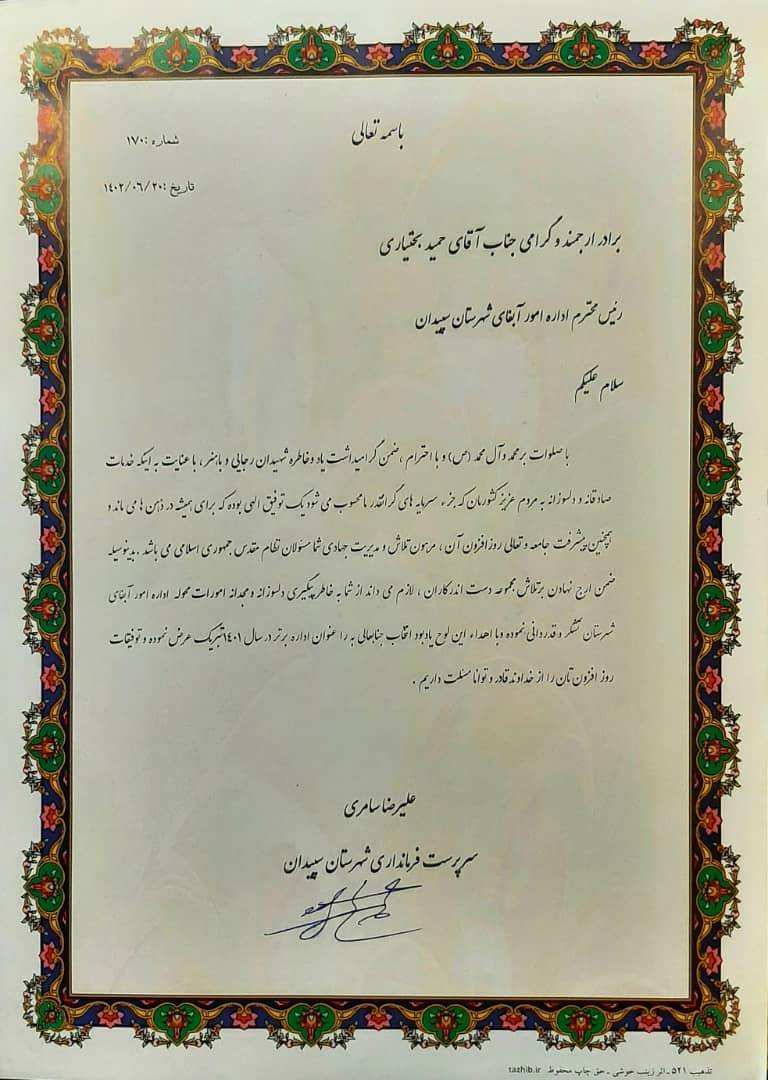 باسمه تعالی
شماره :۱۷۰
تاریخ :۱۴۰۲/۰۶/۲۰
برادر ارجمند و گرامی جناب آقای حمید بختیاری
رئیس محترم اداره امور آبفای شهرستان سپیدان
سلام علیکم
با صلوات بر محمد و آل محمد (ص) و با احترام ، ضمن گرامیداشت یاد و خاطره شهیدان رجایی و باهنر ، با عنایت به اینکه خدمات
صادقانه و دلسوزانه به مردم عزیز کشورمان که جزء سرمایه های گرانقدر ما محسوب می شود یک توفیق الهی بوده که برای همیشه در ذهن ها می ماند و
همچنین پیشرفت جامعه و تعالی روز افزون آن ، مرهون تلاش و مدیریت جهادی شما مسئولان نظام مقدس جمهوری اسلامی می باشد . بدینوسیله
ضمن ارج نهادن بر تلاش مجموعه دست اندرکاران ، لازم می داند از شما به خاطر پیگیری دلسوزانه و مجدانه امورات محوله اداره امور آبفای
شهرستان تشکر و قدردانی نموده و با اهداء این لوح یادبود انتخاب جنابعالی به را عنوان اداره برتر در سال ۱۴۰۱ تبریک عرض نموده و توفیقات
روز افزون تان را از خداوند قادر و توانا مسئلت داریم .
علیرضا سامری
سرپرست فرمانداری شهرستان سپیدان
تذهیب ۵۲۱ ـ اثر زینب خوشی ـ حق چاپ محفوظ tazhib.ir